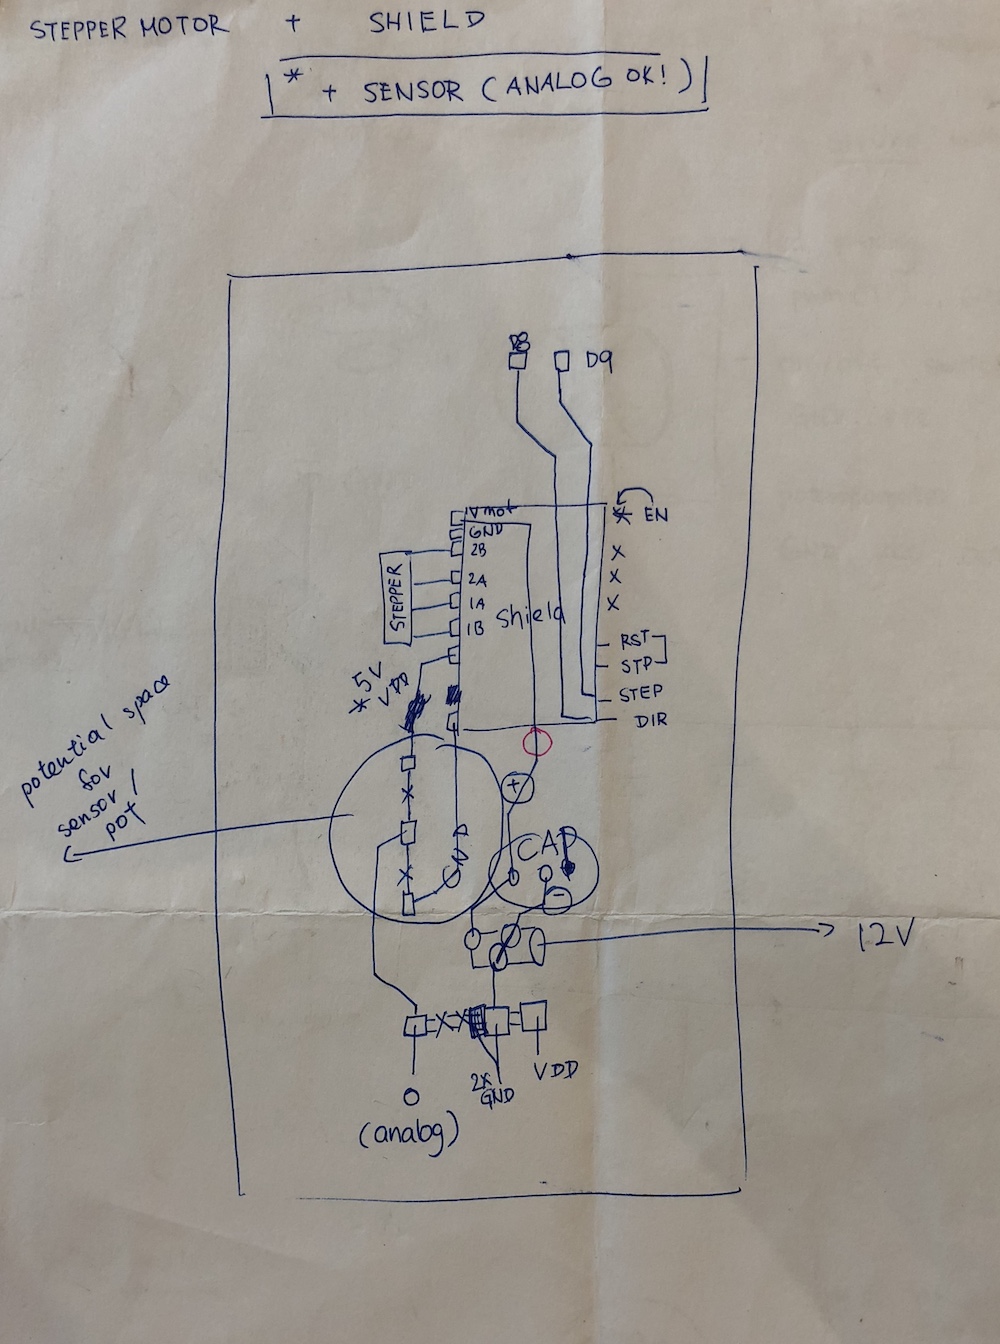 STEPPER MOTOR + SHIELD
* + SENSOR (ANALOG OK!)
D8
D9
Vmot
EN
GND
2B
X
2A
X
1A
X
STEPPER
Shield
1B
RST
STP
*5V
VDD
STEP
DIR
potential space
for
sensor /
pot
+
X
CAP
GND
X
-
12V
X X
2x
GND
VDD
(analog)